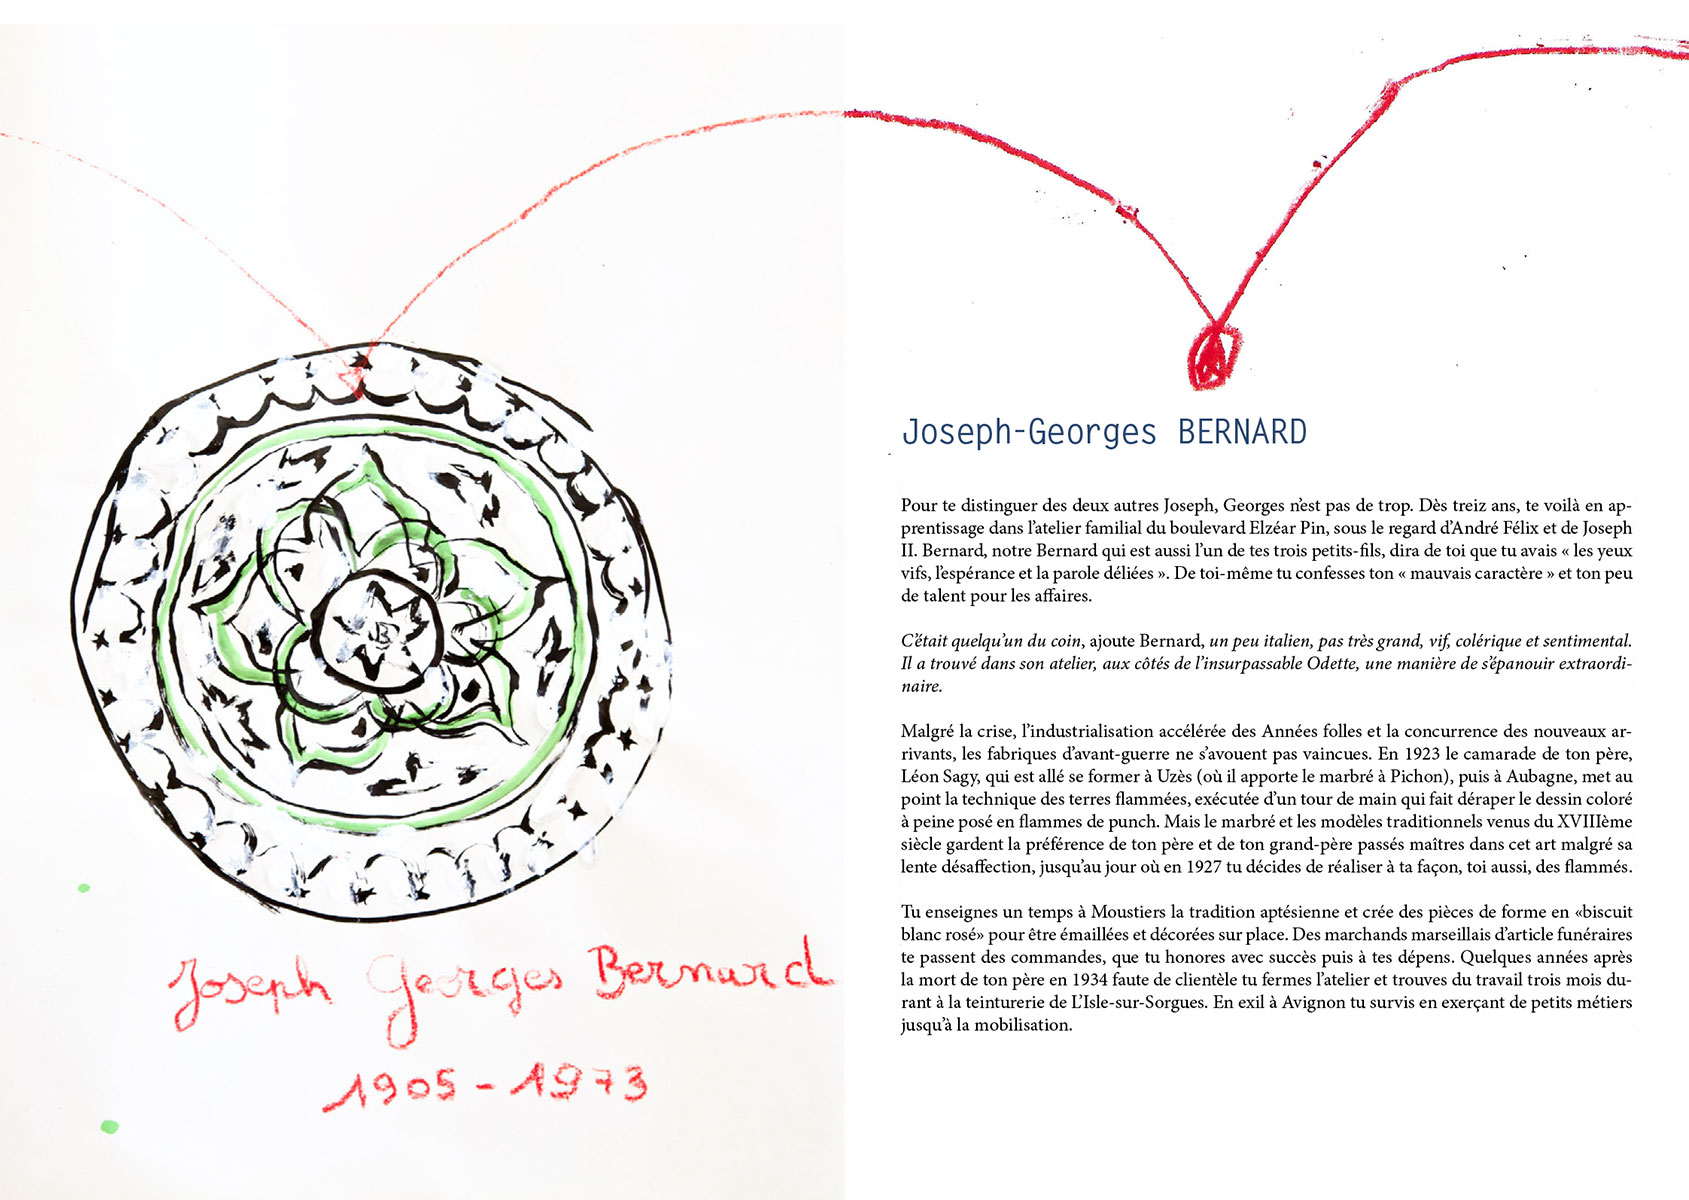 B
Joseph Georges Bernard
1905 - 1973
Joseph-Georges BERNARD
Pour te distinguer des deux autres Joseph, Georges n'est pas de trop. Dès treiz ans, te voilà en ap-
prentissage dans l'atelier familial du boulevard Elzéar Pin, sous le regard d'André Félix et de Joseph
II. Bernard, notre Bernard qui est aussi l'un de tes trois petits-fils, dira de toi que tu avais « les yeux
vifs, l'espérance et la parole déliées ». De toi-même tu confesses ton « mauvais caractère » et ton peu
de talent pour les affaires.
C'était quelqu'un du coin, ajoute Bernard, un peu italien, pas très grand, vif, colérique et sentimental.
Il a trouvé dans son atelier, aux côtés de l'insurpassable Odette, une manière de s'épanouir extraordi-
naire.
Malgré la crise, l'industrialisation accélérée des Années folles et la concurrence des nouveaux ar-
rivants, les fabriques d'avant-guerre ne s'avouent pas vaincues. En 1923 le camarade de ton père,
Léon Sagy, qui est allé se former à Uzès (où il apporte le marbré à Pichon), puis à Aubagne, met au
point la technique des terres flammées, exécutée d'un tour de main qui fait déraper le dessin coloré
à peine posé en flammes de punch. Mais le marbré et les modèles traditionnels venus du XVIIIème
siècle gardent la préférence de ton père et de ton grand-père passés maîtres dans cet art malgré sa
lente désaffection, jusqu'au jour où en 1927 tu décides de réaliser à ta façon, toi aussi, des flammés.
Tu enseignes un temps à Moustiers la tradition aptésienne et crée des pièces de forme en «biscuit
blanc rosé» pour être émaillées et décorées sur place. Des marchands marseillais d'article funéraires
te passent des commandes, que tu honores avec succès puis à tes dépens. Quelques années après
la mort de ton père en 1934 faute de clientèle tu fermes l'atelier et trouves du travail trois mois du-
rant à la teinturerie de L'Isle-sur-Sorgues. En exil à Avignon tu survis en exerçant de petits métiers
jusqu'à la mobilisation.